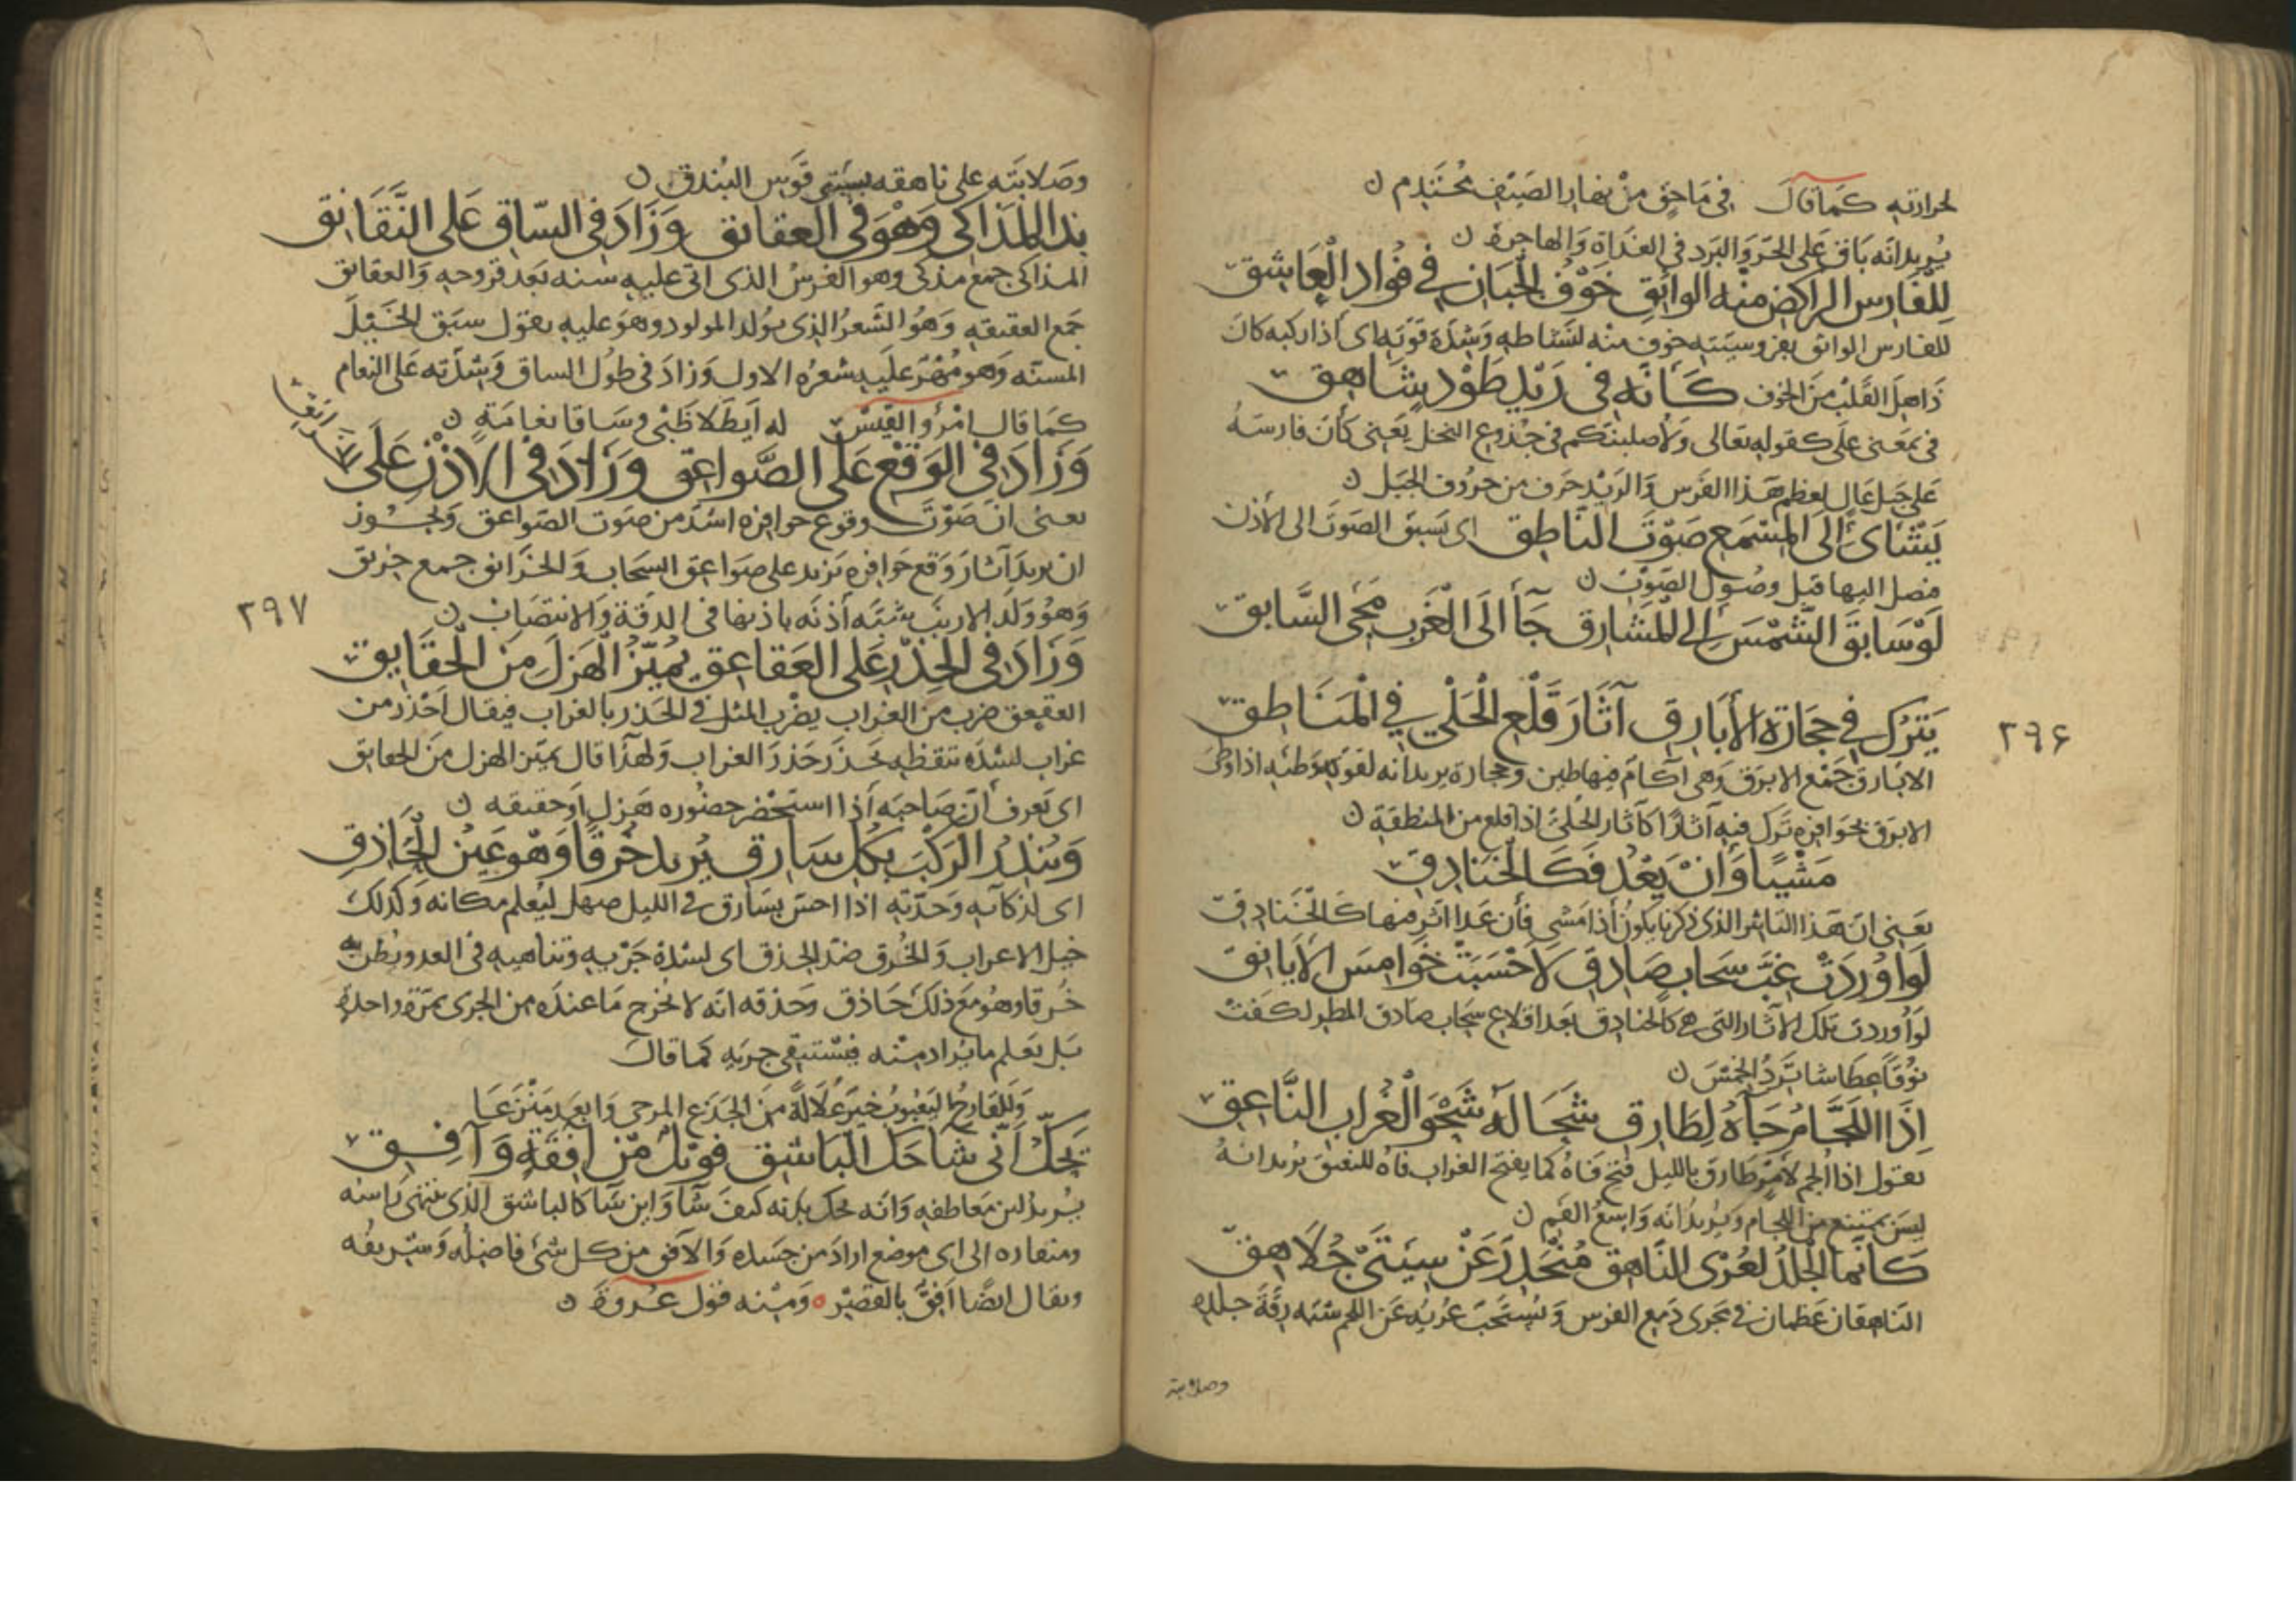 لحرارته كما قال في ماحق من نهار الصيف محتدم ن
يريد انه باق على الحر والبرد في الغداة والهاجرة ن
لِلفَارِسِ الراكِضِ منه الواثِقِ خَوْفُ الجَبَانِ في فُؤادِ العَاشِقِ
للفارس الواثق بفروسيته خوف منه لنشاطه وشدة قوته اى اذا ركبه كان
ذاهل القلب من الخوف كَأَنَّه في رَيْدِ طَوْدٍ شَاهِقِ
في بمعنى على كقوله تعالى ولاصلبنكم في جذوع النخل يعني كأن فارسه
على جبل عال لعظم هذا الفرس والريد حرف من حروف الجبل ن
يَشْأى الى المِسْمَعِ صَوْتَ النَّاطِقِ اى يسبق الصوت الى الأذن
فيصل اليها قبل وصول الصوت ن
لَوْ سَابَقَ الشَّمْسَ الى المَشَارِقِ جَآ الى الغَرْبِ مَجِى السَّابِقِ
٢٩٦
يَتْرُك في حِجَارَةِ الأَبَارِقِ آثَارَ قَلْعِ الحَلْيِ في المَنَاطِقِ
الابارق جمع الابرق وهى آكام فيها طين وحجارة يريد انه لقوة وطئه اذا وطئ
الابرق بحوافره ترك فيه آثارًا كآثار الحلى اذا قلع من المنطقة ن
مَشْيًا وَإن يَعْدُ فَكَالخَنَادِقِ
يعني ان هذا التاثر الذى ذكرنا يكون اذا مشى فأن عدا اثر فيها كالخنادق
لَوْ أُورِدَتْ غِبَّ سَحَابٍ صَادِقِ لَاحْسَبَتْ خَوَامِسَ الأَيَانِقِ
لو أوردت تلك الآثار التى هى كالخنادق بعد اقلاع سحاب صادق المطر لكفت
نوقًا عطاشا ترد الخمس ن
إذَا اللِّجَامُ جَآهُ لِطَارِقِ شَحَا لَه شَحْوَ الغُرَابِ النَّاعِقِ
يقول اذا ألجم لامر طارق بالليل فتح فاه كما يفتح الغراب فاه للنغيق يريد انه
ليس يمتنع من اللجام ويريد انه واسع الفم ن
كَأَنَّمَا الجِلْدُ لعُرْىِ النَّاهِقِ مُنْحَدِرٌ عَنْ سِيَتَىْ جُلَاهِقِ
الناهقان عظمان في مجرى دمع الفرس ويستحب عريه عن اللحم شبه رقة جلده
وصلابته
وصلابته على ناهقه بسيتى قوس البندق ن
بَذَّ المَذَاكِى وَهْوَ في العَقَائِقِ وَزَادَ في السَّاقِ عَلى النَّقَانِقِ
المذاكى جمع مذكى وهو الفرس الذى اتى عليه سنه بعد قروحه والعقائق
جمع العقيقه وهو الشعر الذى يولد المولود وهو عليه يقول سبق الخيل
المسنه وهو مهر عليه شعره الاول وزاد في طول الساق وشدته على النعام
كما قال امرؤ القيس له أيطلا ظبى وساقا نعامة ن
وَزَادَ في الوَقْعِ عَلى الصَّوَاعِقِ وَزَادَ في الأذْنِ عَلَى الخَرَانِقِ
يعنى ان صوت وقوع حوافره اشد من صوت الصواعق ويجوز
ان يريد آثار وقع حوافره تزيد على صواعق السحاب والخرانق جمع خرنق
وهو ولد الارنب شبه أذنه باذنها فى الدقة والانتصاب ن
٢٩٧
وَزَادَ في الحِذْرِ عَلى العَقَاعِقِ يُمَيّزُ الهَزلَ مِنَ الحَقَايِقِ
العقعق ضرب من الغراب يضرب المثل في الحذر بالغراب فيقال احذر من
غراب لشدة تيقظه يحذر حذر الغراب ولهذا قال يميز الهزل من الحقايق
اى يعرف ان صاحبه اذا استحضر حضوره هزل او حقيقه ن
وَيُنذِرُ الرَّكْبَ بِكُلِّ سَارِقِ يُريد خُرقًا وَهْوَ عَيْنُ الحَاذِقِ
اى لذكآئه وحدته اذا احس بسارق في الليل صهل ليعلم مكانه وكذلك
خيل الاعراب والخرق ضد الحذق اى لشدة جريه وتناهيه في العدو يظن به
خرقا وهو مع ذلك حاذق وحذقه انه لا يخرج ما عنده من الجرى بمرة واحدة
بل يعلم ما يراد منه فيستبقى جريه كما قال
وللقارح اليعبوب خير علالة من الجذع المرحى وابعد منزعا
يَحُكُّ أَنَّى شَا حَكَّ البَاشِقِ قُوبِلَ مِن آفِقَةٍ وَآفِقِ
يريد لين معاطفه وانه يحك بدنه كيف شآ واين شآ كالباشق الذى ينتهى راسه
ومنقاره الى اى موضع اراد من جسده والآفق من كل شئ فاضله وشريفه
ويقال ايضًا أفق بالقصر ومنه قول عروة ن